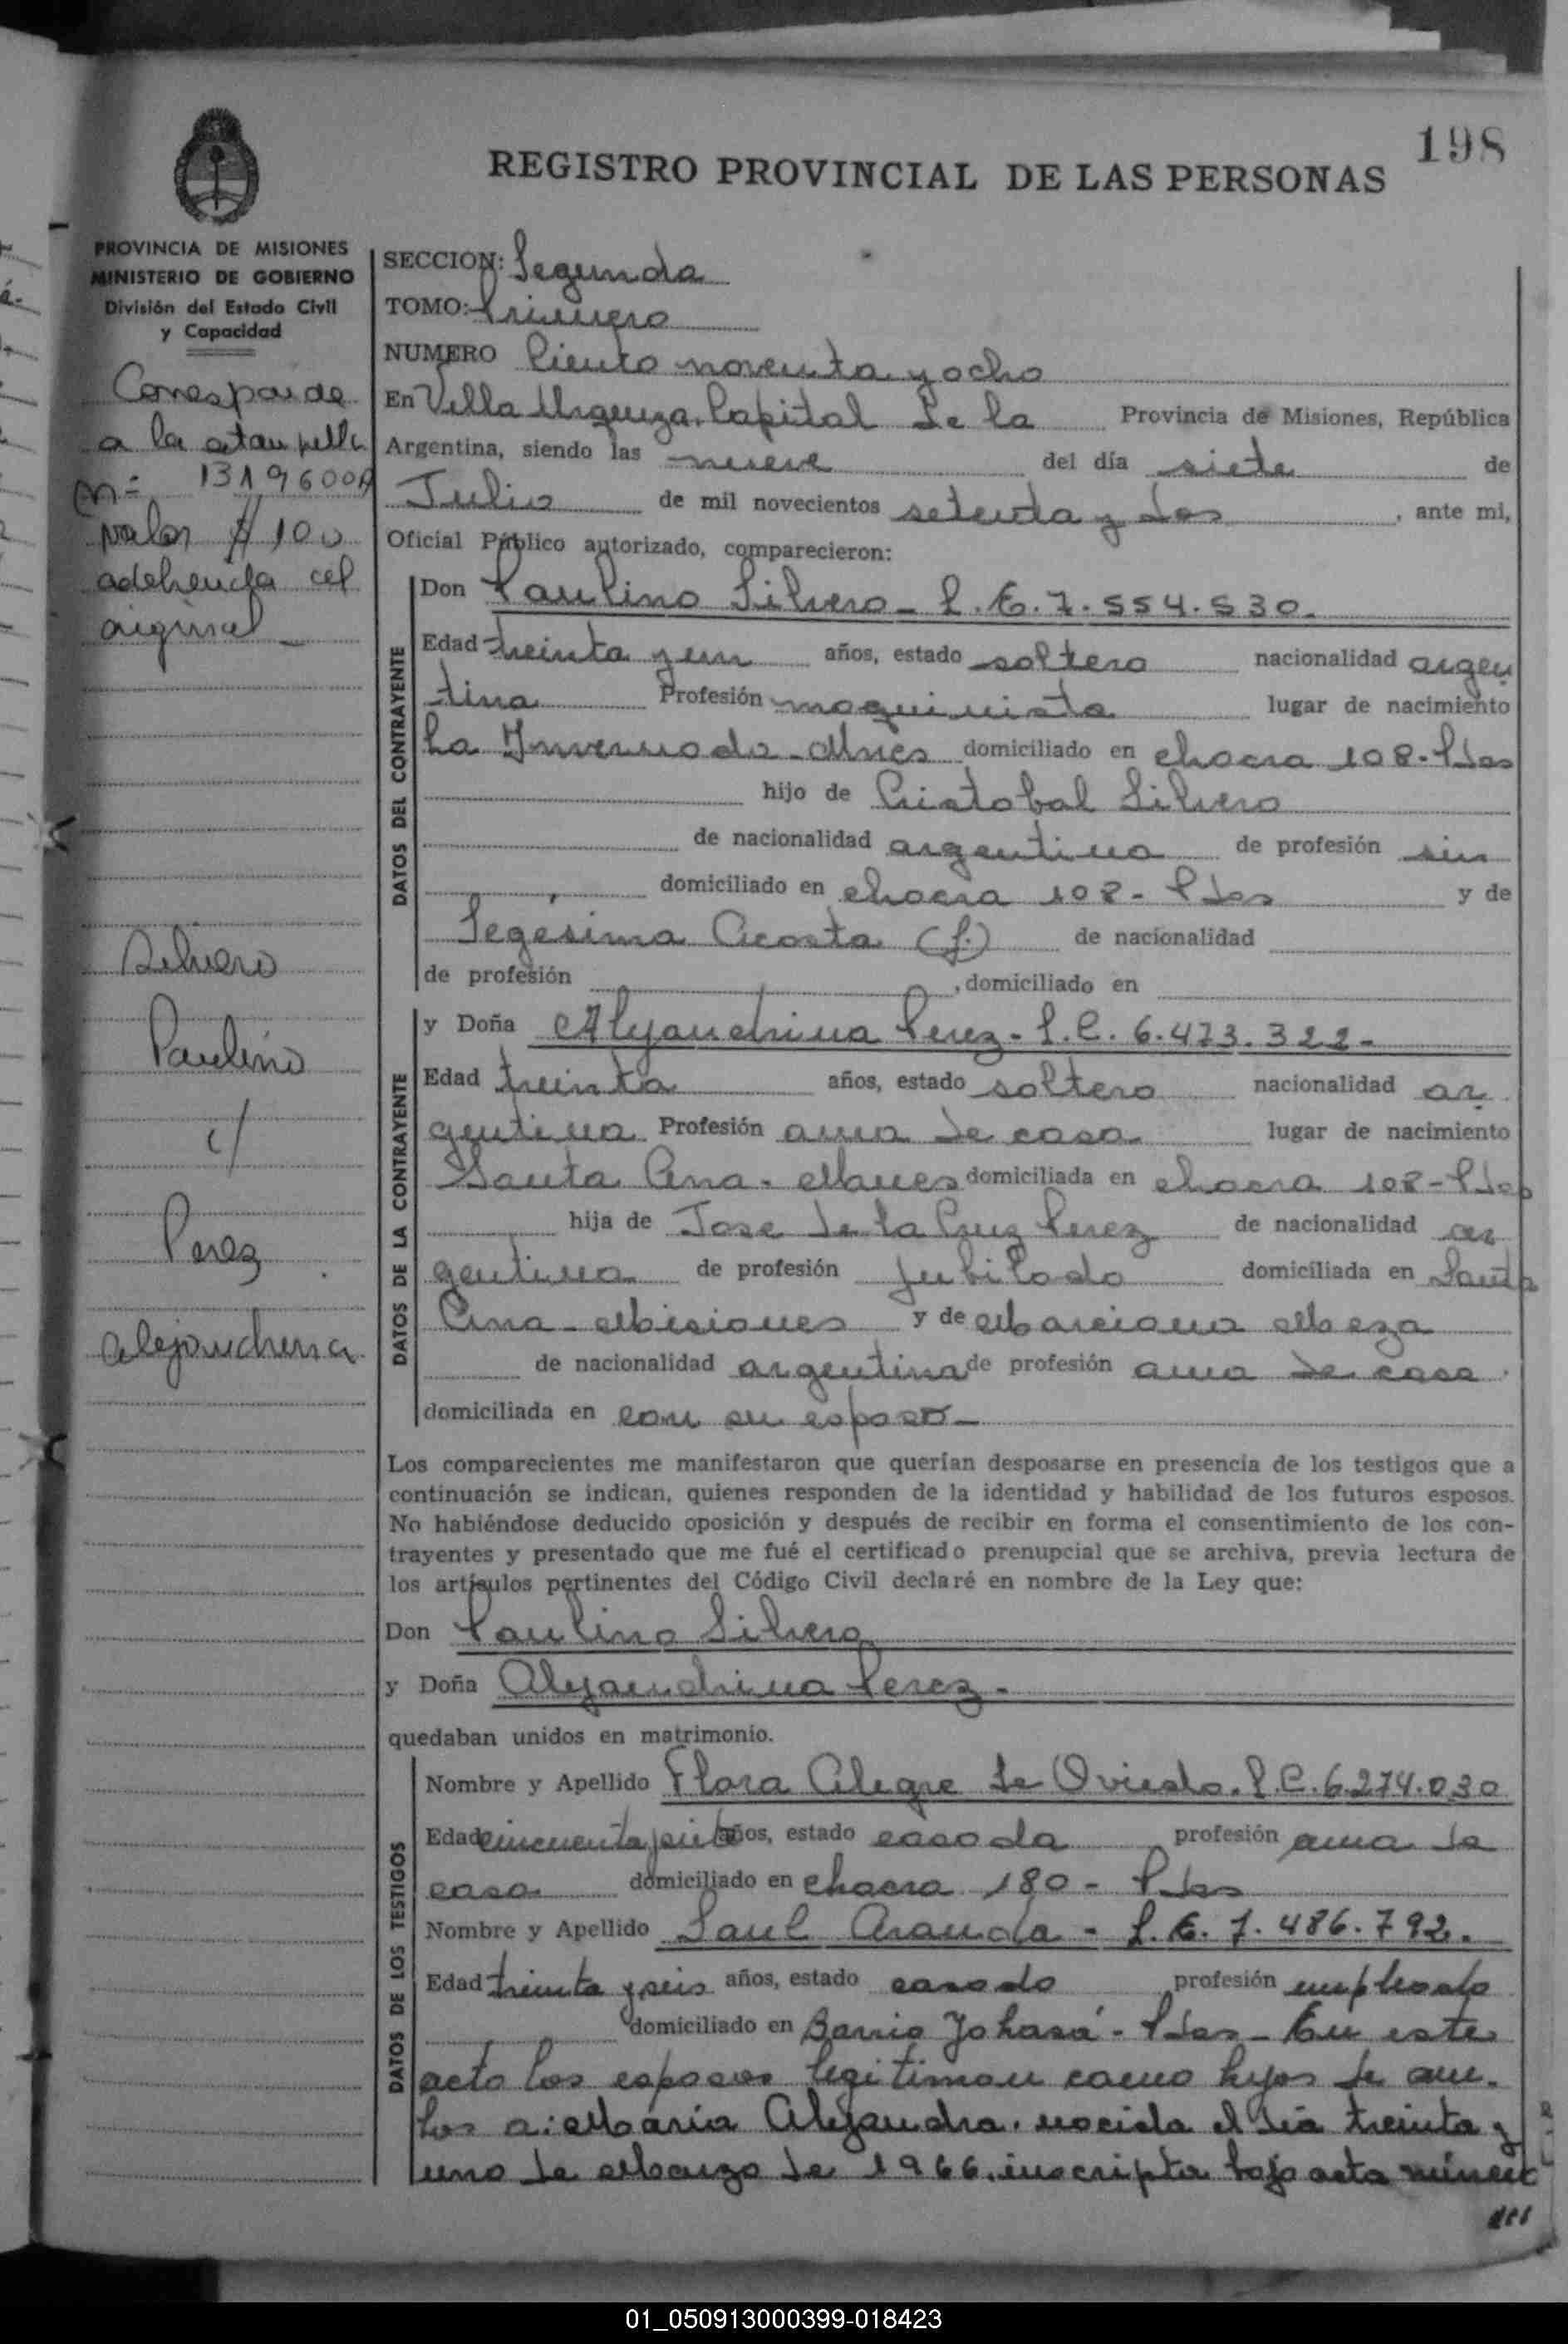 198
REGISTRO PROVINCIAL DE LAS PERSONAS
PROVINCIA DE MISIONES
MINISTERIO DE GOBIERNO
División del Estado Civil
y Capacidad
Corresponde
a la estampilla
Nº 1319600A
valor $ 100
adherida al
original
Silvero
Paulino
c/
Perez
Alejandrina
SECCION: Segunda
TOMO: Primero
NUMERO Ciento noventa y ocho
En Villa Urquiza, Capital de la Provincia de Misiones, República
Argentina, siendo las nueve del día siete de
Julio de mil novecientos setenta y dos, ante mi,
Oficial Público autorizado, comparecieron:
DATOS DEL CONTRAYENTE
Don Paulino Silvero - L.E. 7.554.530.
Edad treinta y un años, estado soltero nacionalidad argen
tina Profesión maquinista lugar de nacimiento
La Invernada - Mnes domiciliado en chacra 108 - Pdas
hijo de Cristobal Silvero
de nacionalidad argentina de profesión sin
domiciliado en chacra 108 - Pdas y de
Segesima Acosta (f.) de nacionalidad
de profesión , domiciliado en
DATOS DE LA CONTRAYENTE
y Doña Alejandrina Perez - L.C. 6.473.322 -
Edad treinta años, estado soltera nacionalidad ar
gentina Profesión ama de casa lugar de nacimiento
Santa Ana - Mnes domiciliada en chacra 108 - Pdas
hija de Jose de la Cruz Perez de nacionalidad ar
gentina de profesión Jubilado domiciliada en Santa
Ana - Misiones y de Marciana Meza
de nacionalidad argentina de profesión ama de casa
domiciliada en con su esposo -
Los comparecientes me manifestaron que querían desposarse en presencia de los testigos que a
continuación se indican, quienes responden de la identidad y habilidad de los futuros esposos.
No habiéndose deducido oposición y después de recibir en forma el consentimiento de los con-
trayentes y presentado que me fué el certificado prenupcial que se archiva, previa lectura de
los artículos pertinentes del Código Civil declaré en nombre de la Ley que:
Don Paulino Silvero
y Doña Alejandrina Perez -
quedaban unidos en matrimonio.
DATOS DE LOS TESTIGOS
Nombre y Apellido Flora Alegre de Oviedo. L.C. 6.274.030
Edad cincuenta y siete años, estado casada profesión ama de
casa domiciliado en chacra 180 - Pdas
Nombre y Apellido Saul Aranda - L.E. 7.486.792.
Edad treinta y seis años, estado casado profesión empleado
domiciliado en Barrio Yohasá - Pdas - En este
acto los esposos legitiman como hijos de am-
bos a: Maria Alejandra, nacida el dia treinta y
uno de marzo de 1966, inscripta bajo acta número
01_050913000399-018423